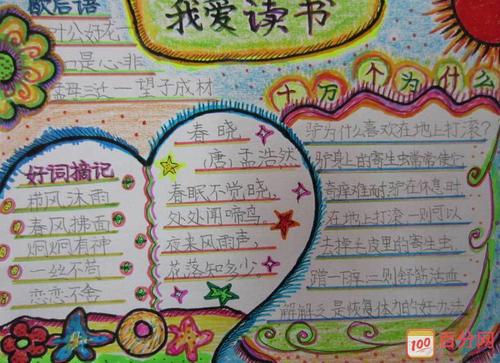 我爱读书
歇后语
叶公好龙
口是心非
孟母三迁一望子成材
好词摘记
栉风沐雨
春风拂面
炯炯有神
一丝不苟
恋恋不舍
春晓
唐,孟浩然
春眠不觉晓,
处处闻啼鸟,
夜来风雨声,
花落知多少,
十万个为什么
驴为什么喜欢在地上打滚?
驴身上的寄生虫常常使它
奇痒难耐驴在休息时
在地上打滚一则可以
去掉土皮里的寄生虫,
蹭一下痒,二则舒筋活血
解解乏是恢复体力的好办法
100
百分网